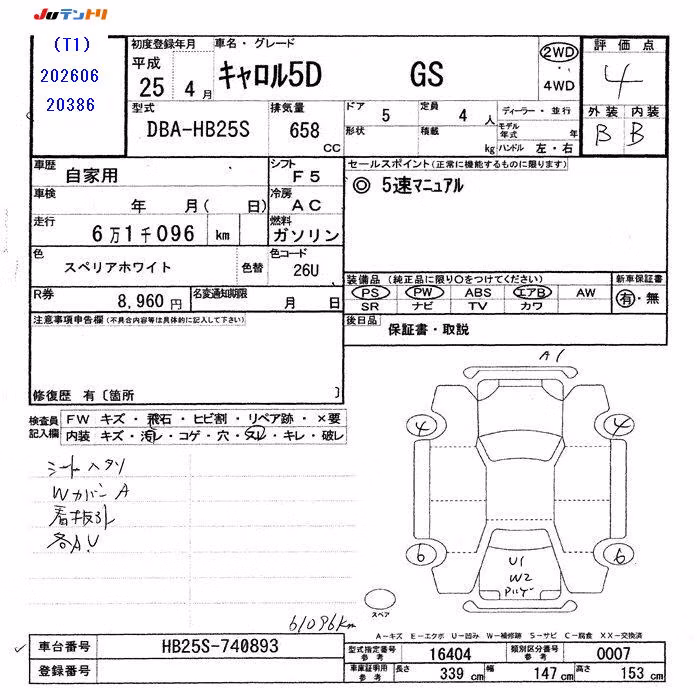 JUテントリ
(T1)
202606
20386
初度登録年月
平成
25年 4月
車名・グレード
キャロル5D GS
2WD
4WD
評価点
4
外装 内装
B B
型式
DBA-HB25S
排気量
658
CC
ドア 5
定員 4 人
形状
積載 kg
ディーラー・並行
モデル年式 年
ハンドル 左・右
車歴
自家用
シフト
F5
車検
年 月( 日)
冷房
AC
走行
6万1千096 km
燃料
ガソリン
色
スペリアホワイト
色替
色コード
26U
R券
8,960円
名変通知期限
月 日
セールスポイント(正常に機能するものに限ります)
◎ 5速マニュアル
装備品 (純正品に限り○をつけてください)
PS PW ABS エアB AW
SR ナビ TV カワ
新車保証書
有・無
後日品
保証書・取説
注意事項申告欄(不具合内容等は具体的に記入して下さい)
修復歴 有〔箇所 〕
検査員記入欄
FW キズ・飛石・ヒビ割・リペア跡・×要
内装 キズ・汚レ・コゲ・穴・スレ・キレ・破レ
シートヘタリ
WカバーA
看板跡
各A.U
61096km
A1
4
4
6
6
U1
W2
スペア
A-キズ E-エクボ U-凹み W-補修跡 S-サビ C-腐食 XX-交換済
車台番号
HB25S-740893
登録番号
型式指定番号 参考
16404
類別区分番号 参考
0007
車庫証明用 参考
長さ 339 cm
幅 147 cm
高さ 153 cm